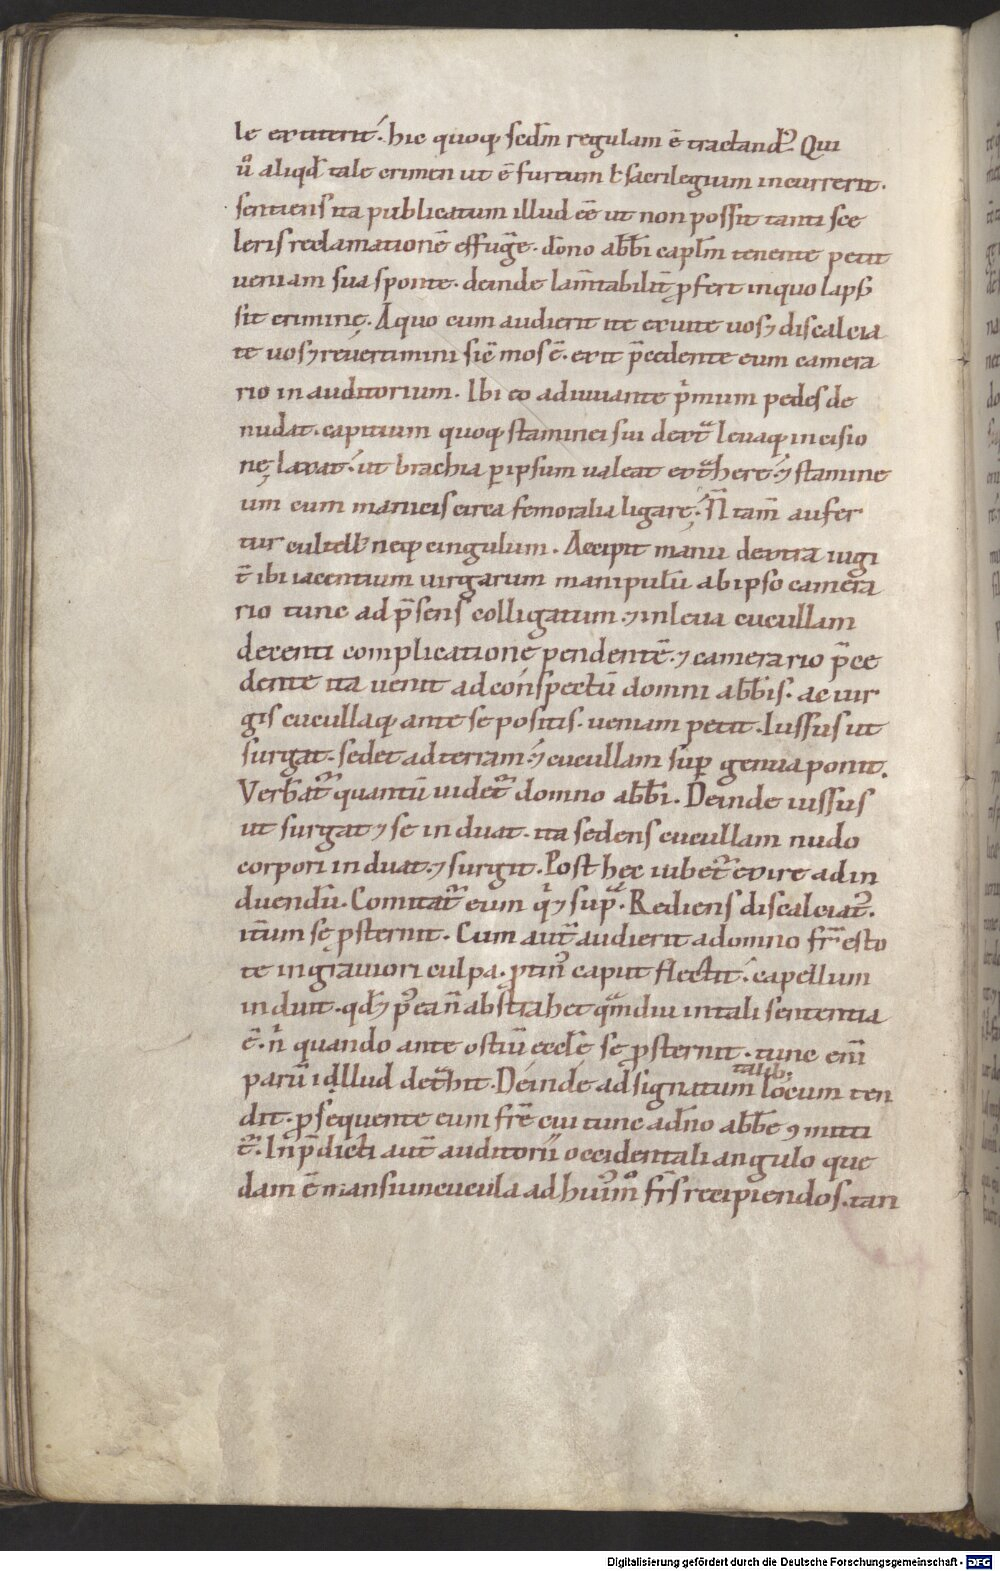 le extiterit. hic quoq; secdm regulam ē tractand᷒. Qui
ů aliqd̄ tale crimen ut ē furtum ł sacrilegium incurrerit.
sentiens ita publicatum illud eē ut non possit tanti sce
leris reclamationē effug̃e. dōno abb̄i capłm tenente petit
ueniam sua sponte. deinde lam̄tabilit̄ ꝓfert inquo laps᷒
sit crimine. A quo cum audierit ite exuite uos ⁊ discalcia
te uos ⁊ reuertimini sic̄ mos ē. exit p̄cedente eum camera
rio in auditorium. Ibi eo adiuuante p̓mum pedes de
nudat. capitium quoq; staminei sui dext̃ leuaq; incisio
nę laxat. ut brachia ꝑ ipsum ualeat ext̃here. ⁊ stamine
um cum manicis circa femoralia ligare. N̄ tam̄ aufer
tur cultell᷒ neq; cingulum. Accipit manu dextra iugi
t̄ ibi iacentium uirgarum manipulū ab ipso camera
rio tunc ad p̄sens colligatum. ⁊ in leua cucullam
decenti complicatione pendentē. ⁊ camerario p̄ce
dente ita uenit ad conspectū domni abb̄is. ac uir
gis cucullaq; ante se positis. ueniam petit. Iussus ut
surgat. sedet ad terram. ⁊ cucullam suꝑ genua ponit.
Verbat᷒ quantū uidet᷒ domno abb̄i. Deinde iussus
ut surgat ⁊ se induat. ita sedens cucullam nudo
corpori induat. ⁊ surgit. Post hec iubet᷒ exire ad in
duendū. Comitat᷒ eum q̓ ⁊ sup̃. Rediens discalciat᷒.
it̄um se ꝓsternit. Cum aut̄ audierit a domno fr̄ esto
te in grauiori culpa. ꝓtin᷒ caput flectit. capellum
induit. qd̄ ⁊ p᷒ea n̄ abstrahet q̃mdiu in tali sententia
ē. n̓ quando ante ostiū eccłe se ꝓsternit. tunc eni̅
parū id illud det̃hit. Deinde ad signatum talib; locum ten
dit. ꝓsequente eum fr̄e cui tunc a dn̄o abb̄e ⁊mitti
t᷒. In p̄dicti aut̄ auditorii occidentali angulo que
dam ē mansiuncucula ad hui᷒moͦ fr̄s recipiendos. tan
Digitalisierung gefördert durch die Deutsche Forschungsgemeinschaft - DFG